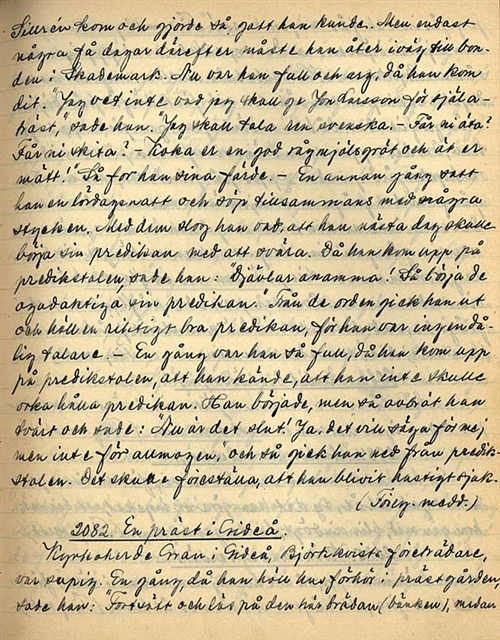 Sillrén kom och gjorde så, gott han kunde. Men endast
några få dagar därefter måste han åter iväg till bon-
den i Skademark. Nu var han full och arg, då han kom
dit. "Jag vet inte vad jag skall ge Jon Larsson för själa-
tröst," sade han. "Jag skall tala ren svenska. - Får ni äta?
Får ni skita? - Koka er en god rågmjölsgröt och ät er
mätt!" Så for han sina färde. - En annan gång satt
han en lördagsnatt och söp tillsammans med några
stycken. Med dem slog han vad, att han nästa dag skulle
börja sin predikan med att svära. Då han kom upp på
predikstolen, sade han: "Djävlar anamma! Så börja de
ogudaktiga sin predikan." Från de orden gick han ut
och höll en riktigt bra predikan, för han var ingen då-
lig talare. - En gång var han så full, då han kom upp
på predikstolen, att han kände, att han inte skulle
orka hålla predikan. Han började, men så avbröt han
tvärt och sade: "Nu är det slut! Ja, det vill säga för mej
men inte för allmogen," och så gick han ned från predik-
stolen. Det skulle föreställa, att han blivit hastigt sjuk.
(Föreg. medd.)
2082. En präst i Gideå.
Kyrkoherde Gran i Gideå, Björkkvists företrädare,
var supig. En gång, då han höll husförhör i prästgården,
sade han: "Fortsätt och läs på den här brädan (bänken), medan